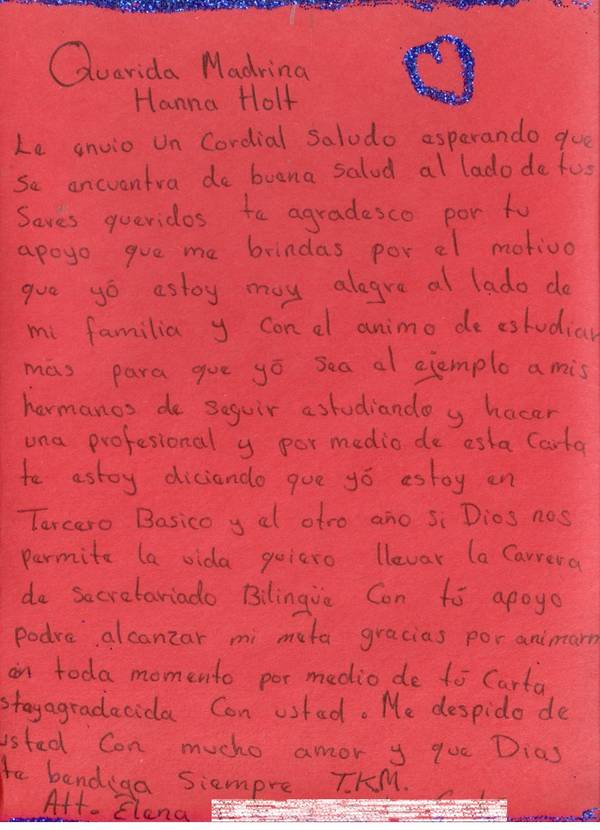 Querida Madrina
Hanna Holt
Le envio un Cordial Saludo esperando que
se encuentra de buena Salud al lado de tus
Serés queridos te agradesco por tu
apoyo que me brindas por el motivo
que yó estoy muy alegre al lado de
mi familia y con el animo de estudiar
más para que yó sea el ejemplo a mis
hermanos de seguir estudiando y hacer
una profesional y por medio de esta Carta
te estoy diciendo que yó estoy en
Tercero Basico y el otro año si Dios nos
permite la vida quiero llevar la Carrera
de Secretariado Bilingüe Con tú apoyo
podre alcanzar mi meta gracias por animarm
en toda momento por medio de tú Carta
stoy agradecida Con usted. Me despido de
usted Con mucho amor y que Dios
te bendiga Siempre T.K.M.
Att. Elena